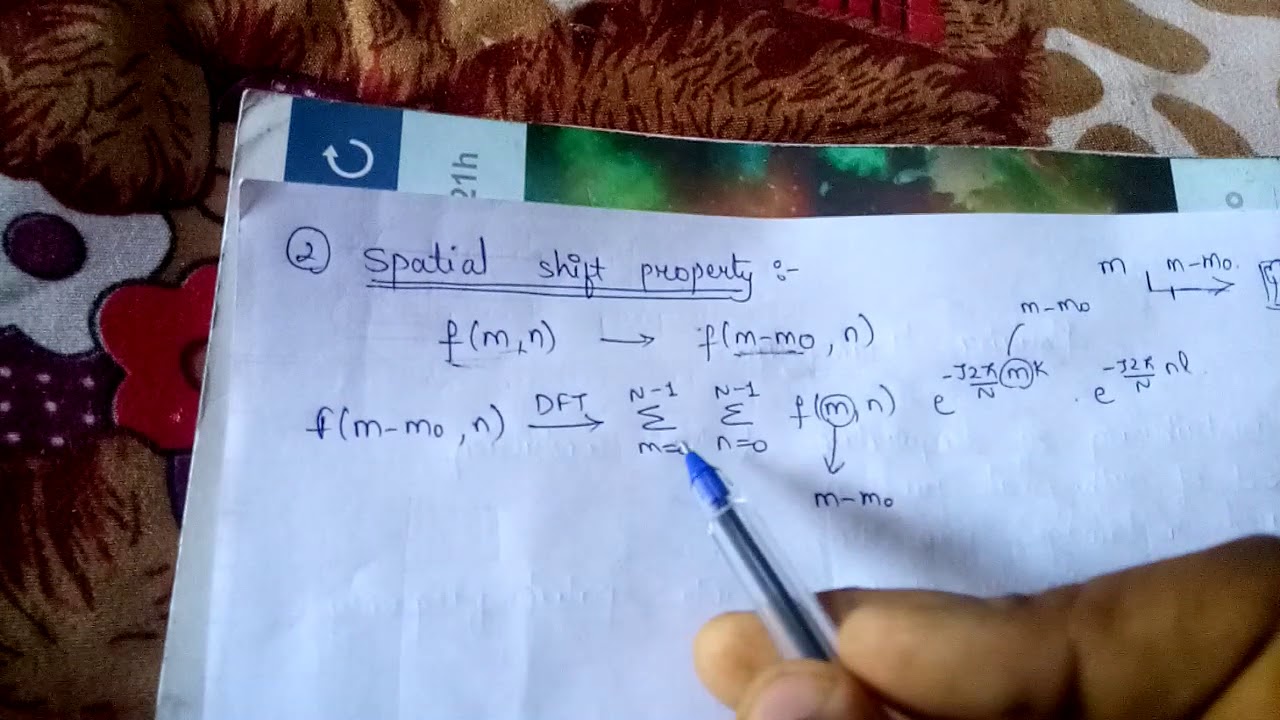 21h
② Spatial shift property :-
m m-m₀
m-m₀
f(m,n) → f(m-m₀, n)
f(m-m₀, n) DFT→ N-1 Σ m= N-1 Σ n=0 f(m, n) e^(-J2π/N mK) . e^(-J2π/N nl)
m-m₀